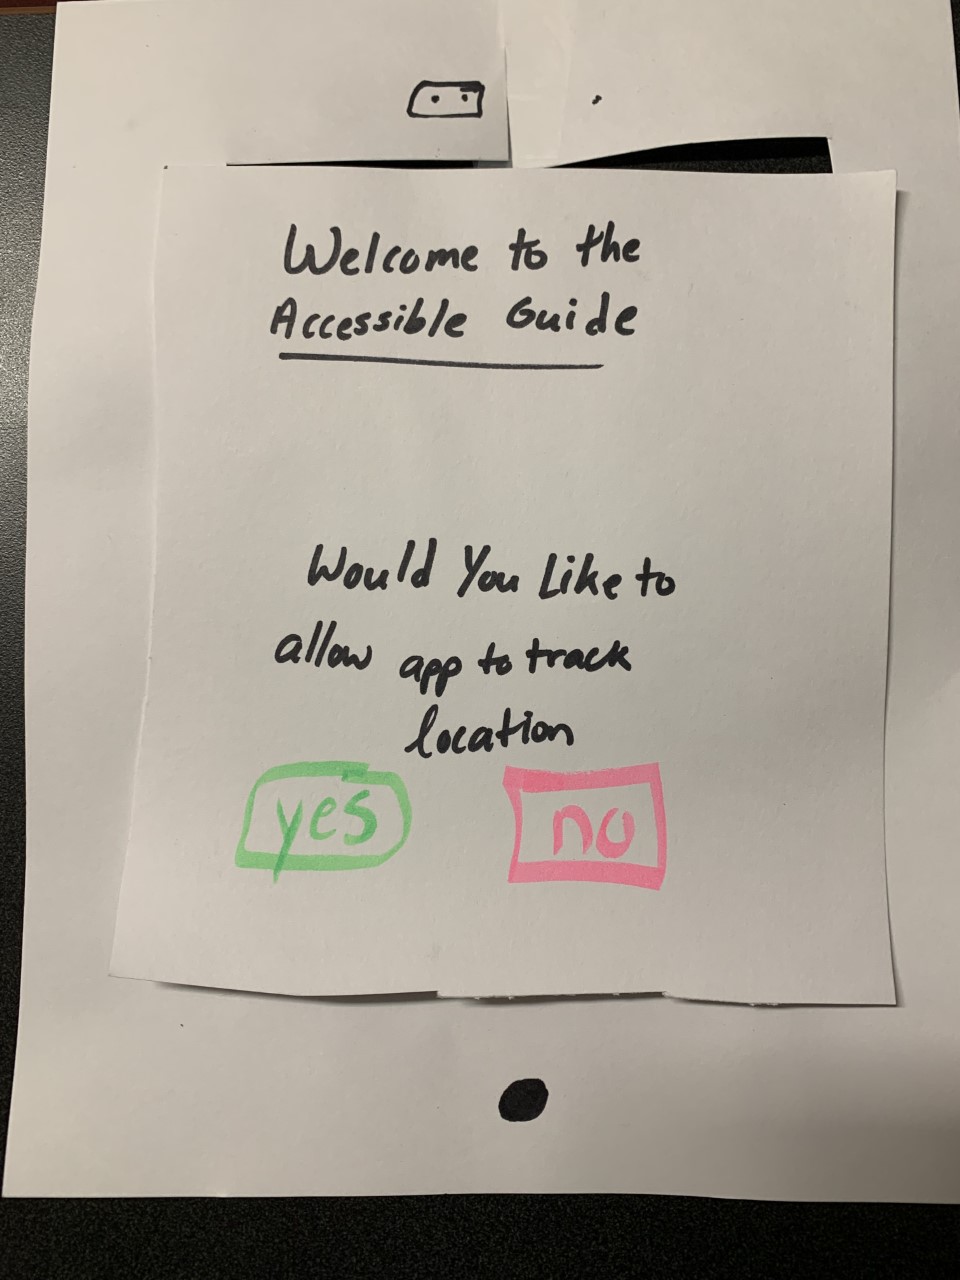 Welcome to the
Accessible Guide
Would You Like to
allow app to track
location
yes
no